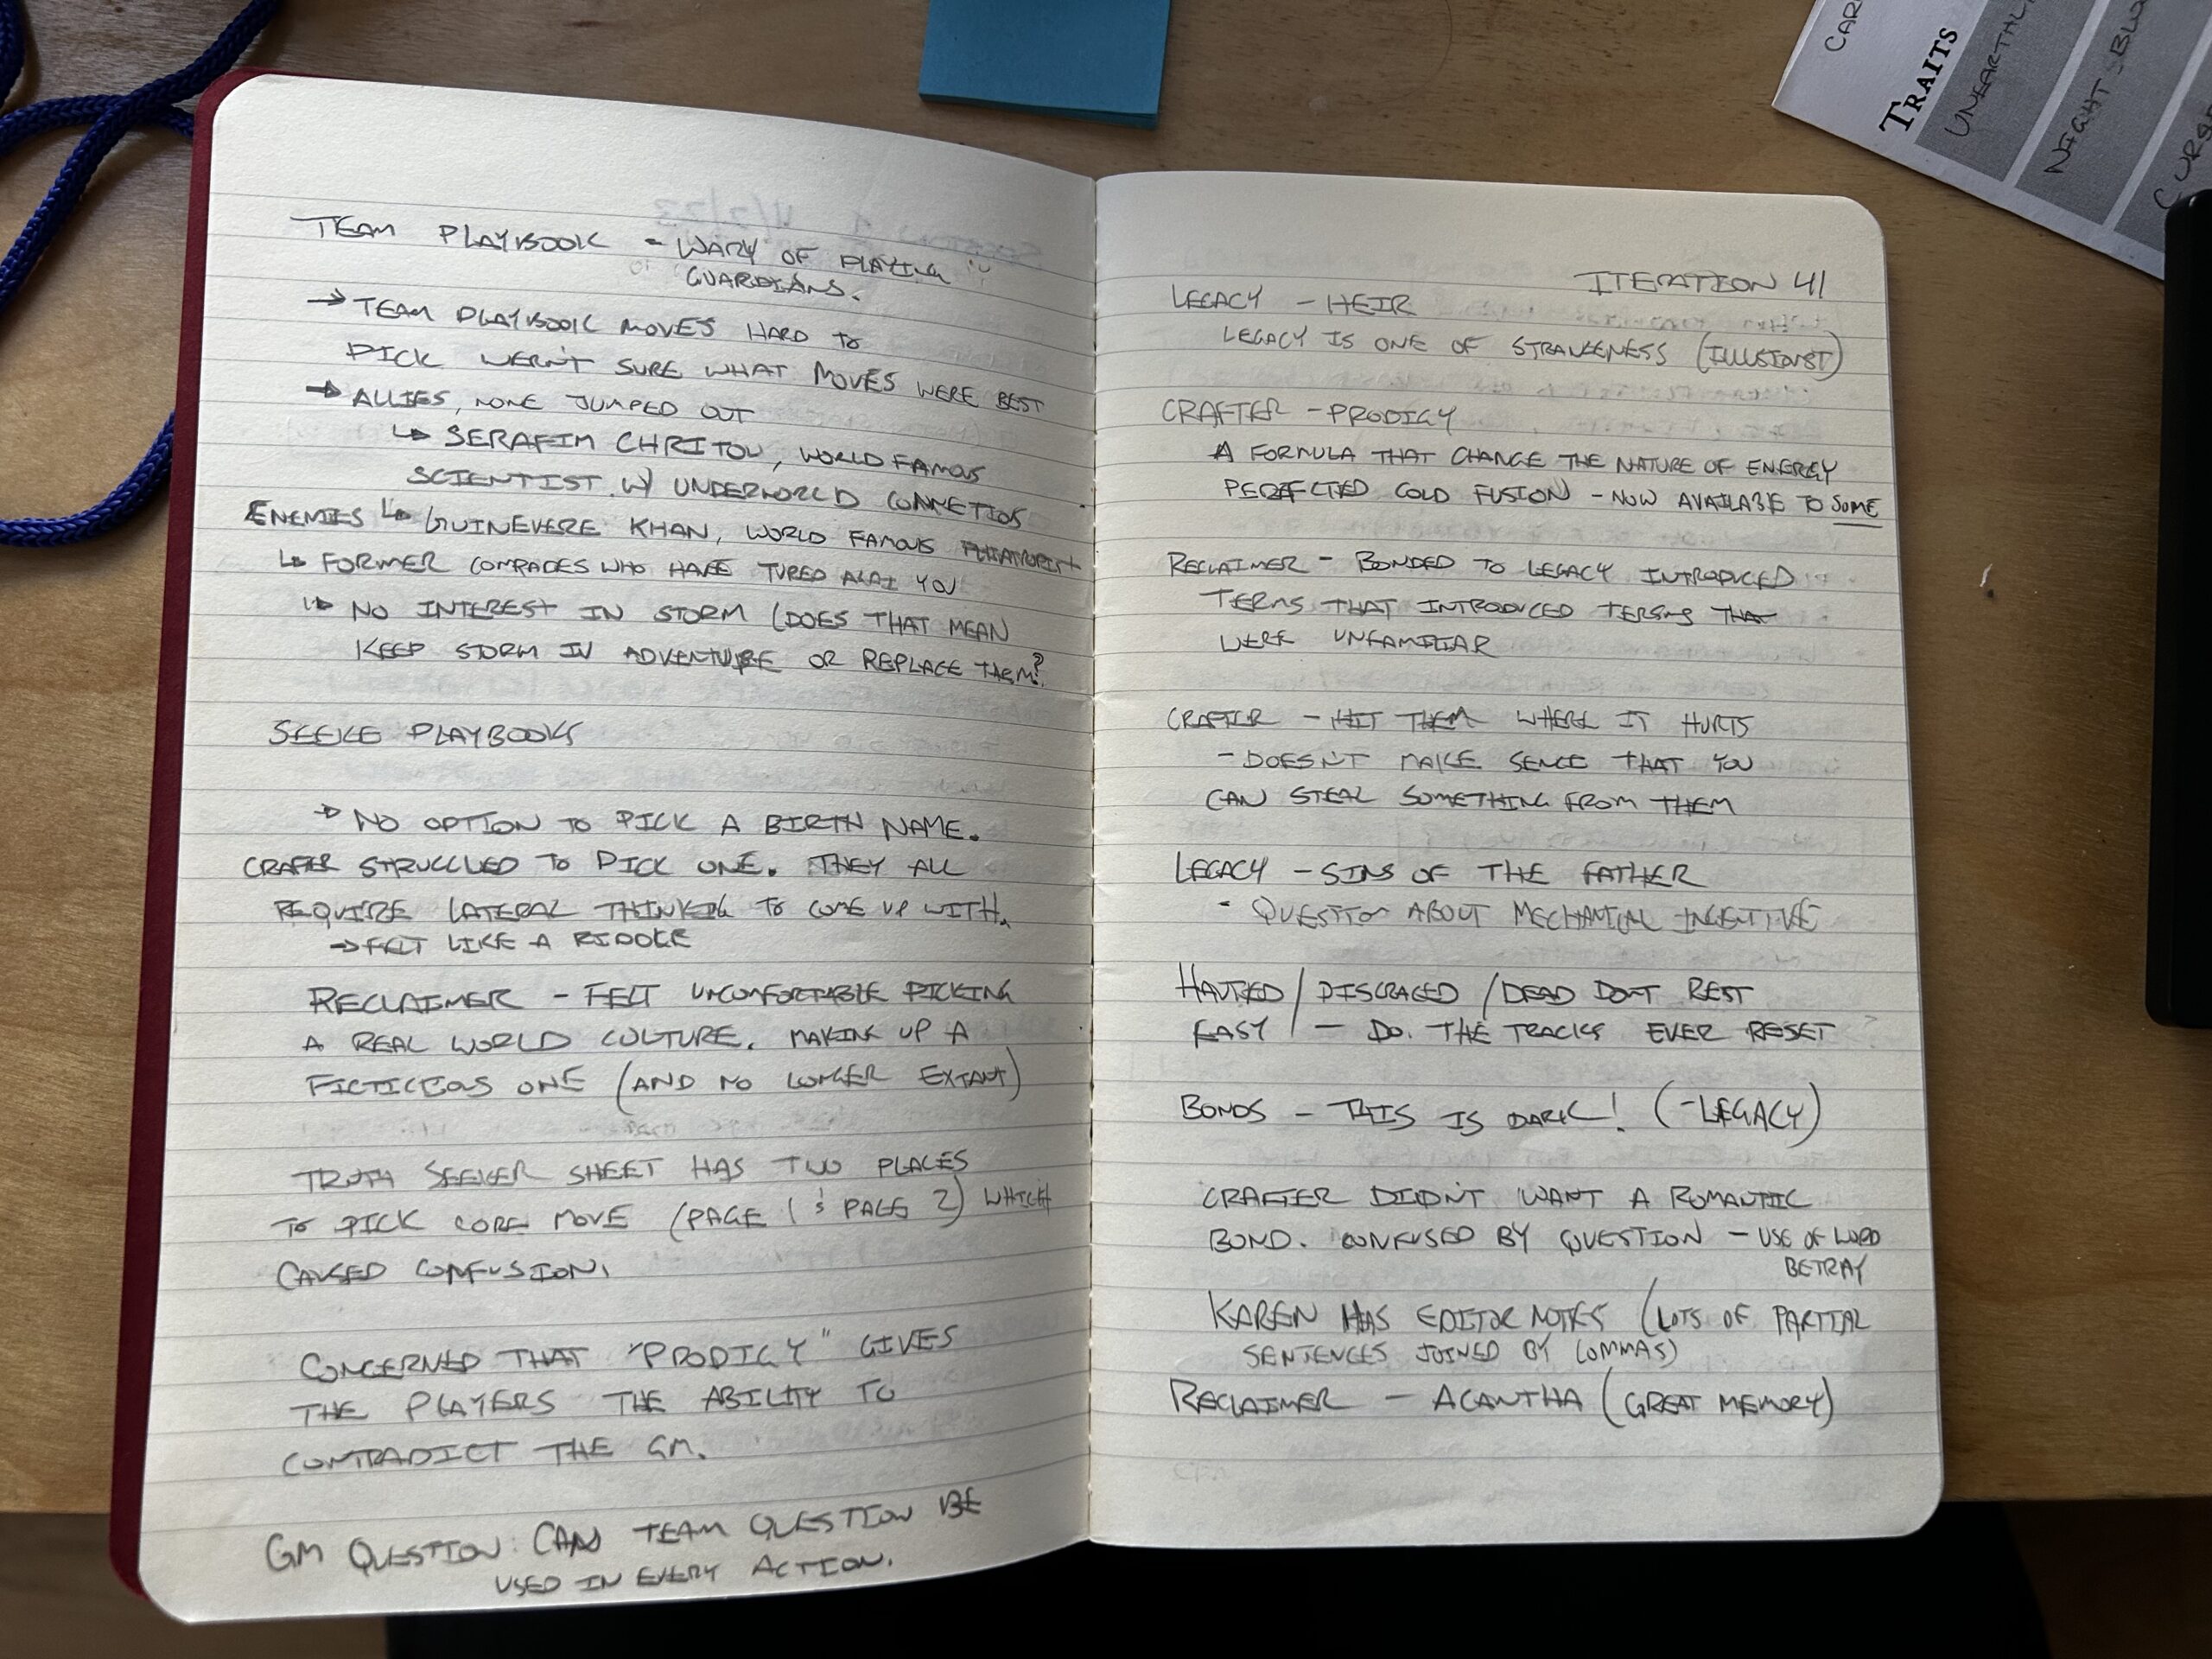 TEAM PLAYBOOK - WARY OF PLAYING
GUARDIANS.
→ TEAM PLAYBOOK MOVES HARD TO
PICK WERN'T SURE WHAT MOVES WERE BEST
→ ALLIES, NONE JUMPED OUT
↳ SERAFIM CHRITOU, WORLD FAMOUS
SCIENTIST W/ UNDERWORLD CONNETIOS
ENEMIES ↳ GUINEVERE KHAN, WORLD FAMOUS
↳ FORMER COMRADES WHO HAVE TURED YOU
↳ NO INTEREST IN STORM (DOES THAT MEAN
KEEP STORM IN ADVENTURE OR REPLACE THEM?
SEEKE PLAYBOOKS
→ NO OPTION TO PICK A BIRTH NAME.
CRAFER STRUGGLED TO PICK ONE. THEY ALL
REQUIRE LATERAL THINKING TO COME UP WITH.
→ FELT LIKE A RIDDLE
RECLAIMER - FELT UNCOMFORTABLE PICKING
A REAL WORLD CULTURE. MAKING UP A
FICTICEOUS ONE (AND NO LONGER EXTANT)
TRUTH SEEKER SHEET HAS TWO PLACES
TO PICK CORE MOVE (PAGE 1 & PAGE 2) WHICH
CAUSED CONFUSION,
CONCERNED THAT "PRODIGY" GIVES
THE PLAYERS THE ABILITY TO
CONTRADICT THE GM.
GM QUESTION: CAN TEAM QUESTION BE
USED IN EVERY ACTION.
ITERATION 41
LEGACY - HEIR
LEGACY IS ONE OF STRANGENESS (ILLUSIONST)
CRAFTER - PRODIGY
A FORMULA THAT CHANGE THE NATURE OF ENERGY
PERFECTED COLD FUSION - NOW AVAILABLE TO SOME
RECLAIMER - BONDED TO LEGACY INTRODUCED
TERMS THAT INTRODUCED TERMS THAT
WERE UNFAMILIAR
CRAFTER - HIT THEM WHERE IT HURTS
- DOESN'T MAKE SENCE THAT YOU
CAN STEAL SOMETHING FROM THEM
LEGACY - SINS OF THE FATHER
- QUESTION ABOUT MECHANICAL INCENTIVE
HAUTED / DISGRACED / DEAD DON'T REST
EASY / - DO. THE TRACKS EVER RESET
BONDS - THIS IS DARK! (-LEGACY)
CRAFTER DIDN'T WANT A ROMANTIC
BOND. CONFUSED BY QUESTION - USE OF WORD
BETRAY
KAREN HAS EDITOR NOTES (LOTS OF PARTIAL
SENTENCES JOINED BY COMMAS)
RECLAIMER - ACANTHA (GREAT MEMORY)
CAR
TRAITS
UNEARTHL
NIGHT BLU
CURSE